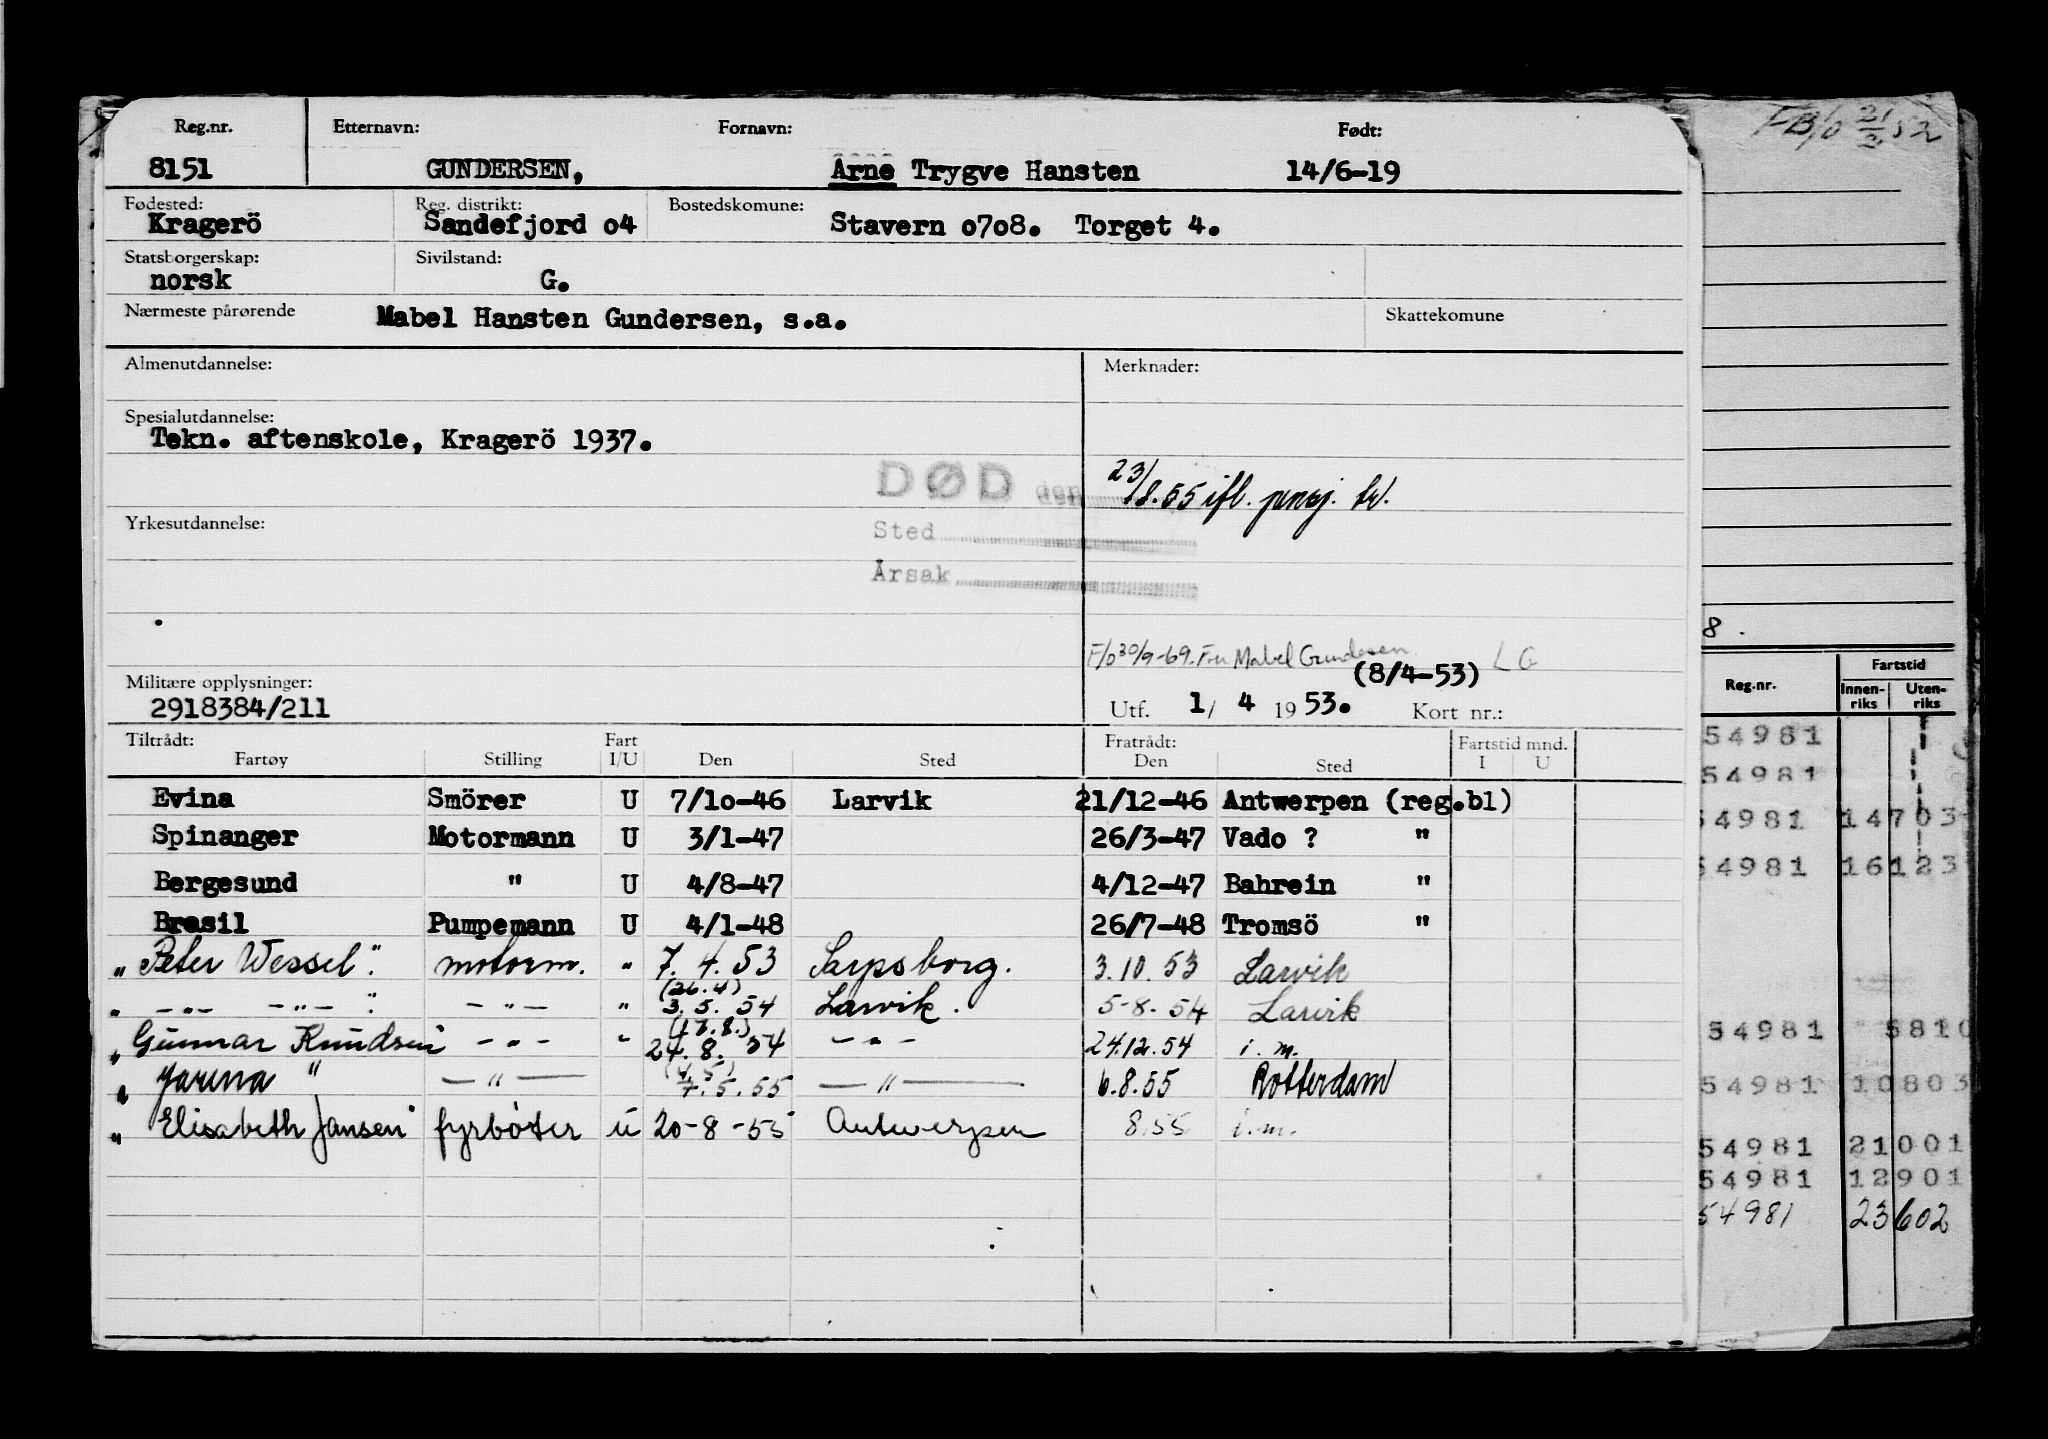 Reg.nr. Etternavn: Fornavn: Født:
8151 GUNDERSEN, Arne Trygve Hansten 14/6-19
Fødested: Reg. distrikt: Bostedskomune:
Kragerö Sandefjord o4 Stavern o7o8. Torget 4.
Statsborgerskap: Sivilstand:
norsk G.
Nærmeste pårørende Mabel Hansten Gundersen, s.a. Skattekomune
Almenutdannelse: Merknader:
Spesialutdannelse:
Tekn. aftenskole, Kragerö 1937.
DØD den 23/8.55 ifl. pensj. tr.
Sted
Yrkesutdannelse:
Årsak
F/o 30/9-69. Fru Mabel Gundersen. L G
(8/4-53)
Militære opplysninger:
2918384/211 Utf. 1/ 4 1953. Kort nr.:
Tiltrådt: Fart Fratrådt: Fartstid mnd.
Fartøy Stilling I/U Den Sted Den Sted I U
Evina Smörer U 7/1o-46 Larvik 21/12-46 Antwerpen (reg.bl)
Spinanger Motormann U 3/1-47 26/3-47 Vado ? "
Bergesund " U 4/8-47 4/12-47 Bahrein "
Brasil Pumpemann U 4/1-48 26/7-48 Tromsö "
" Peter Wessel". motorm. " 7. 4. 53 Sarpsborg. 3.10. 53 Larvik
(26.4)
" -"- -"- " -"- " 3. 5. 54 Larvik. 5-8. 54 Larvik
(17.8.)
" Gunnar Knudsen" -"- " 24. 8. 54 -"- 24.12.54 i. m.
(4.5)
" Jarena " -"- 7.5.55 -"- 6.8.55 Rotterdam
" Elisabeth Jansen" fyrbøter u 20-8-55 Antwerpen 8.55 i.m.
FB/o 21/2 52
8.
Fartstid
Reg.nr. Innen- Uten-
riks riks
54981
54981
54981 14703
54981 16123
54981 5810
54981 10803
54981 21001
54981 12901
54981 23602